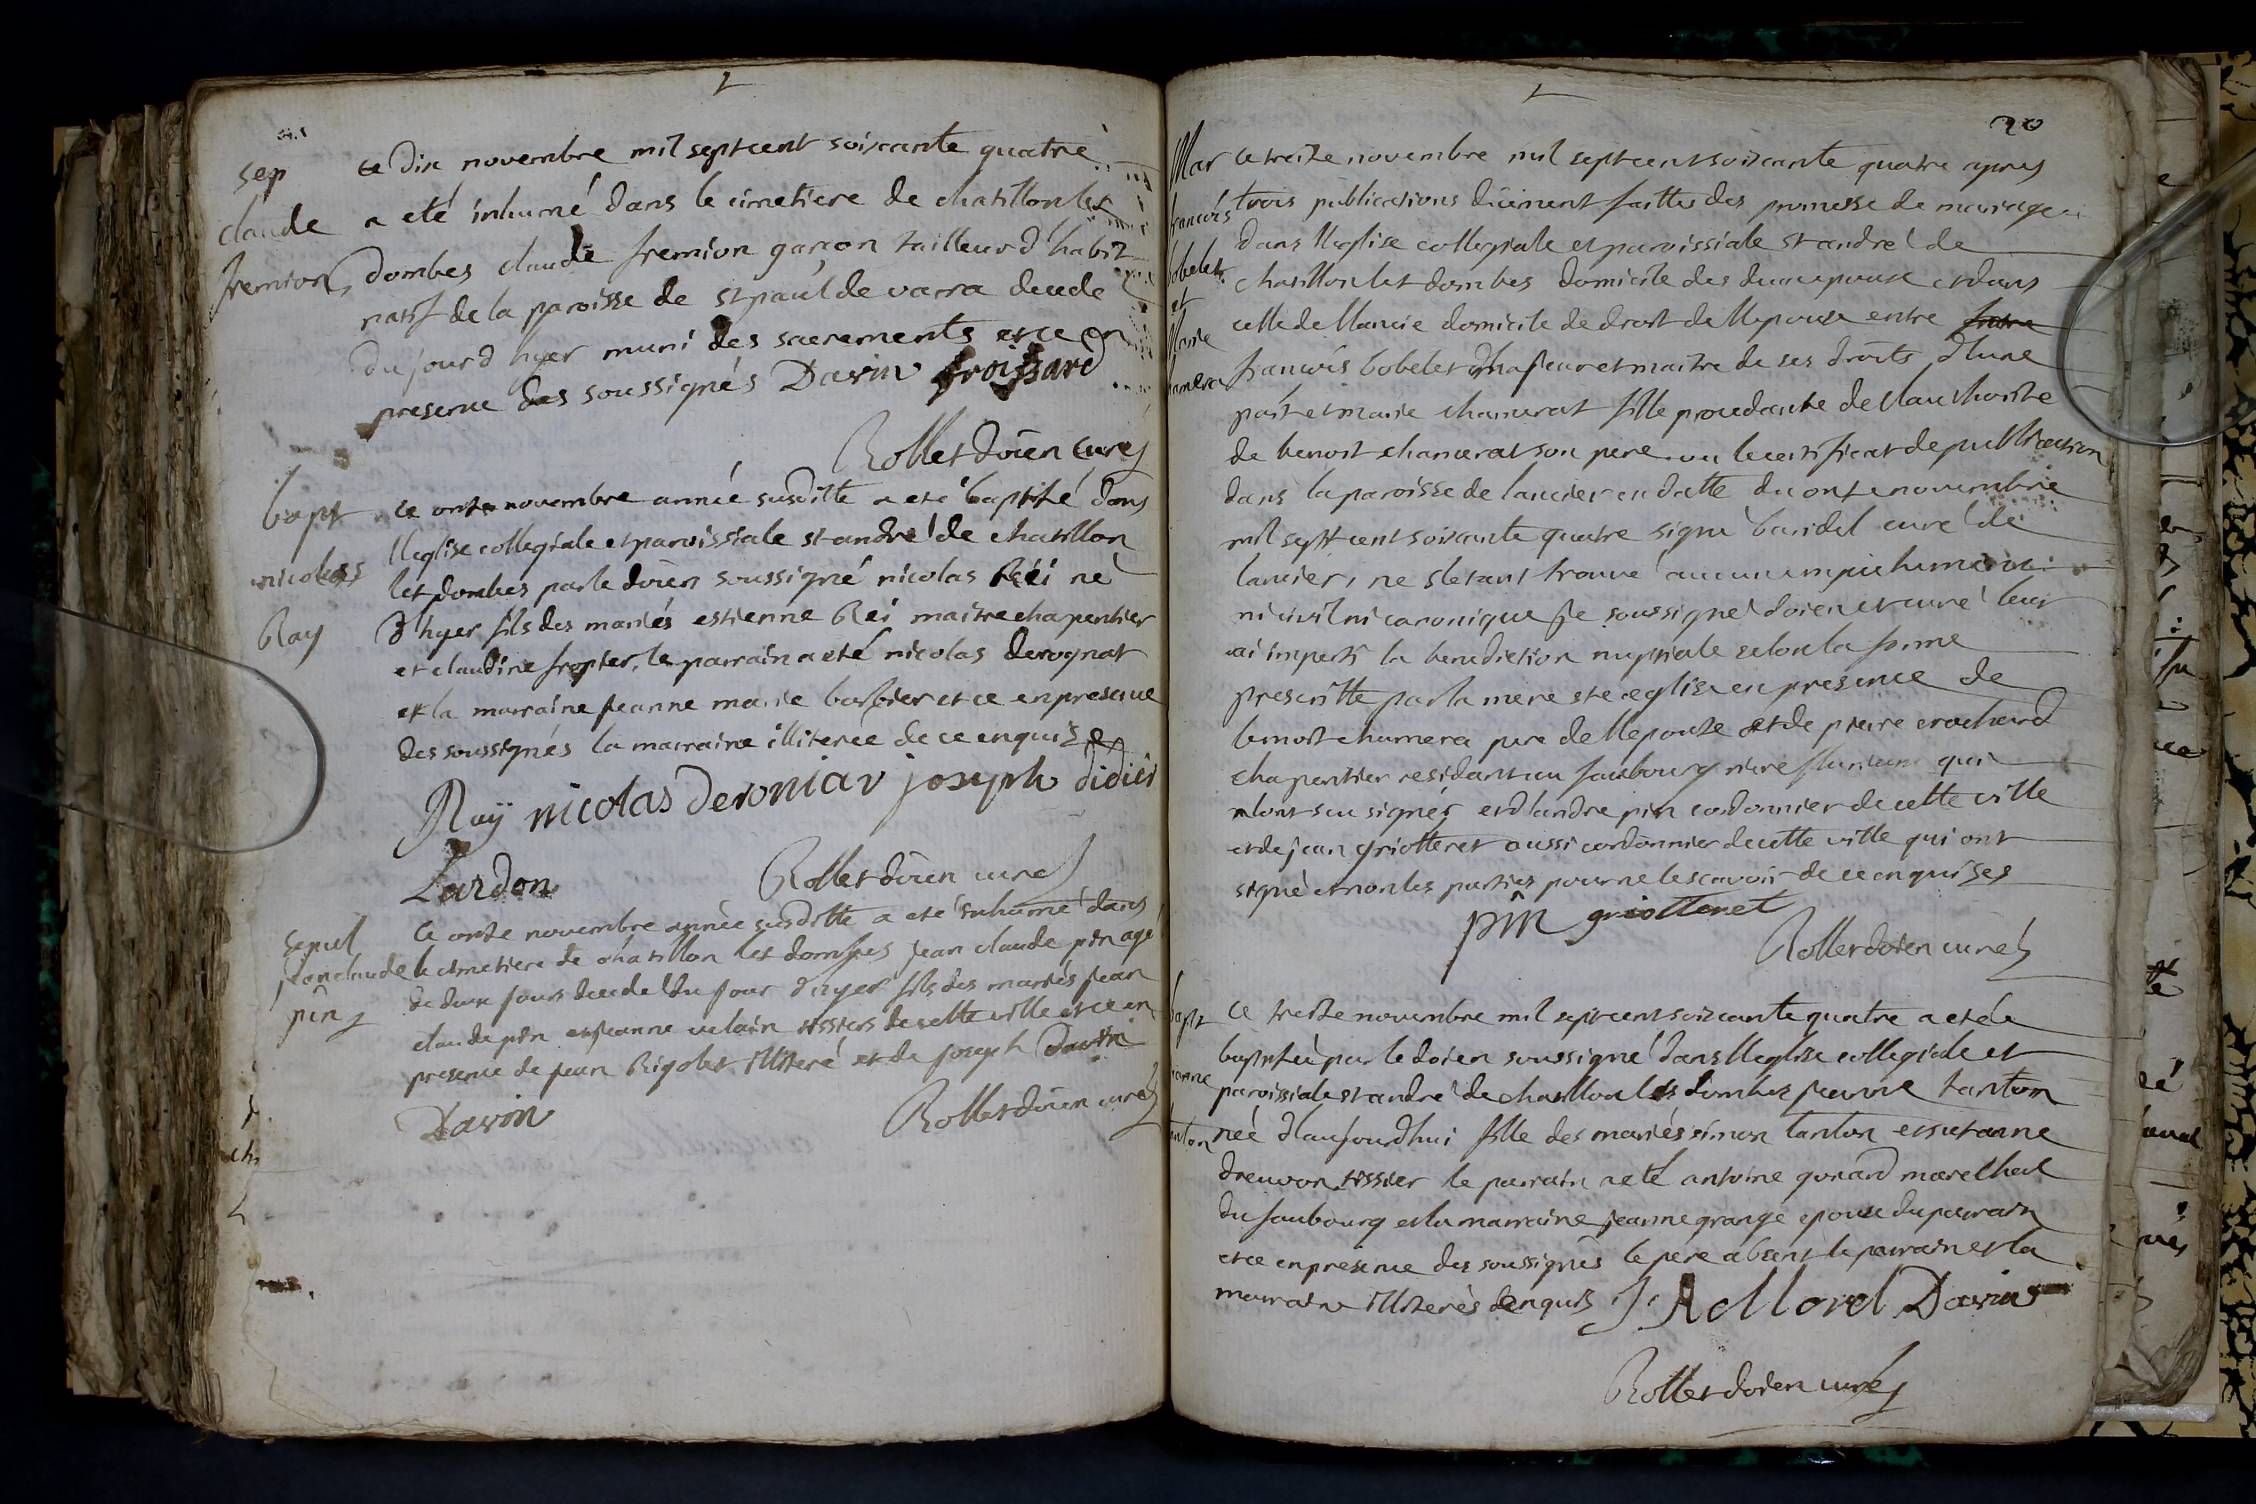 sep
claude
fremion
ce dix novembre mil sept cent soixante quatre
a eté inhumé dans le cimetiere de chatillon les
dombes claude fremion garcon tailleur d habit
natif de la paroisse de st paul de varra decede
du jour d hyer muni des sacrements et ce en
presence des soussignés Davin froissard
Rollet doien curé
bapt
nicolas
Ray
ce onze novembre année susditte a eté baptisé dans
lleglise collegiale et paroissiale st andré de chatillon
les dombes par le doien soussigné nicolas Rei né
d hyer fils des mariés estienne Rei maitre chapentier
et claudine fropier, le parrain a eté nicolas derognat
et la marraine jeanne marie barbier et ce en presence
des soussignés la marraine illiteree de ce enquise
Ray nicolas deroniav joseph didier
Lardon Rollet doien curé
sepul
jean claude
pin
ce onze novembre année susditte a eté inhumé dans
le cimetiere de chatillon les dombes jean claude pin agé
de deux jours decedé du jour d'hyer fils des mariés jean
claude pin et jeanne velain tissiers de cette ville et ce en
presence de jean Rigolet illiteré et de joseph Davin
Davin Rollet doien curé
20
Mar
francois
bobelet
et
Marie
chamera
ce treize novembre mil sept cent soixante quatre apres
trois publications duement faittes des promesse de mariage
dans lleglise collegiale et paroissiale st andré de
chatillon les dombes domicile des deux epoux et dans
celle de llancie domicile de droit de llepouse entre
francois bobelet majeur et maitre de ses droits d'lune
part et marie chamerat fille procedante de llauthorité
de benoit chamerat son pere. vu le certificat de publication
dans la paroisse de lancier en datte du onze novembre
mil sept cent soixante quatre signé baridel curé de
lancier, ne sletant trouvé aucun empechement
ni civil ni canonique je soussigné doien et curé leur
ai imparti la benediction nuptiale selon la forme
prescritte par la mere ste eglise en presence de
benoit chamera pere de llepouse et de pierre crochard
chapentier residant au faubourg qui
nlont scu signer et d'landre pin cordonnier de cette ville
et de jean griotteret aussi cordonnier de cette ville qui ont
signé et non les parties pour ne le scavoir de ce enquises
pin griotteret
Rollet doien curé
bapt
ce treize novembre mil sept cent soixante quatre a eté
baptisée par le doien soussigné dans lleglise collegiale et
paroissiale st andré de chatillon les dombes jeanne tanton
née d'laujourdhui fille des mariés simon tanton et suzanne
drevon tissier le parrain a eté antoine gonard marechal
du faubourg et la marraine jeanne grange epouse du parrain
et ce en presence des soussignés le pere absent le parrain et la
marraine illiterés denquis Davin
Rollet doien curé